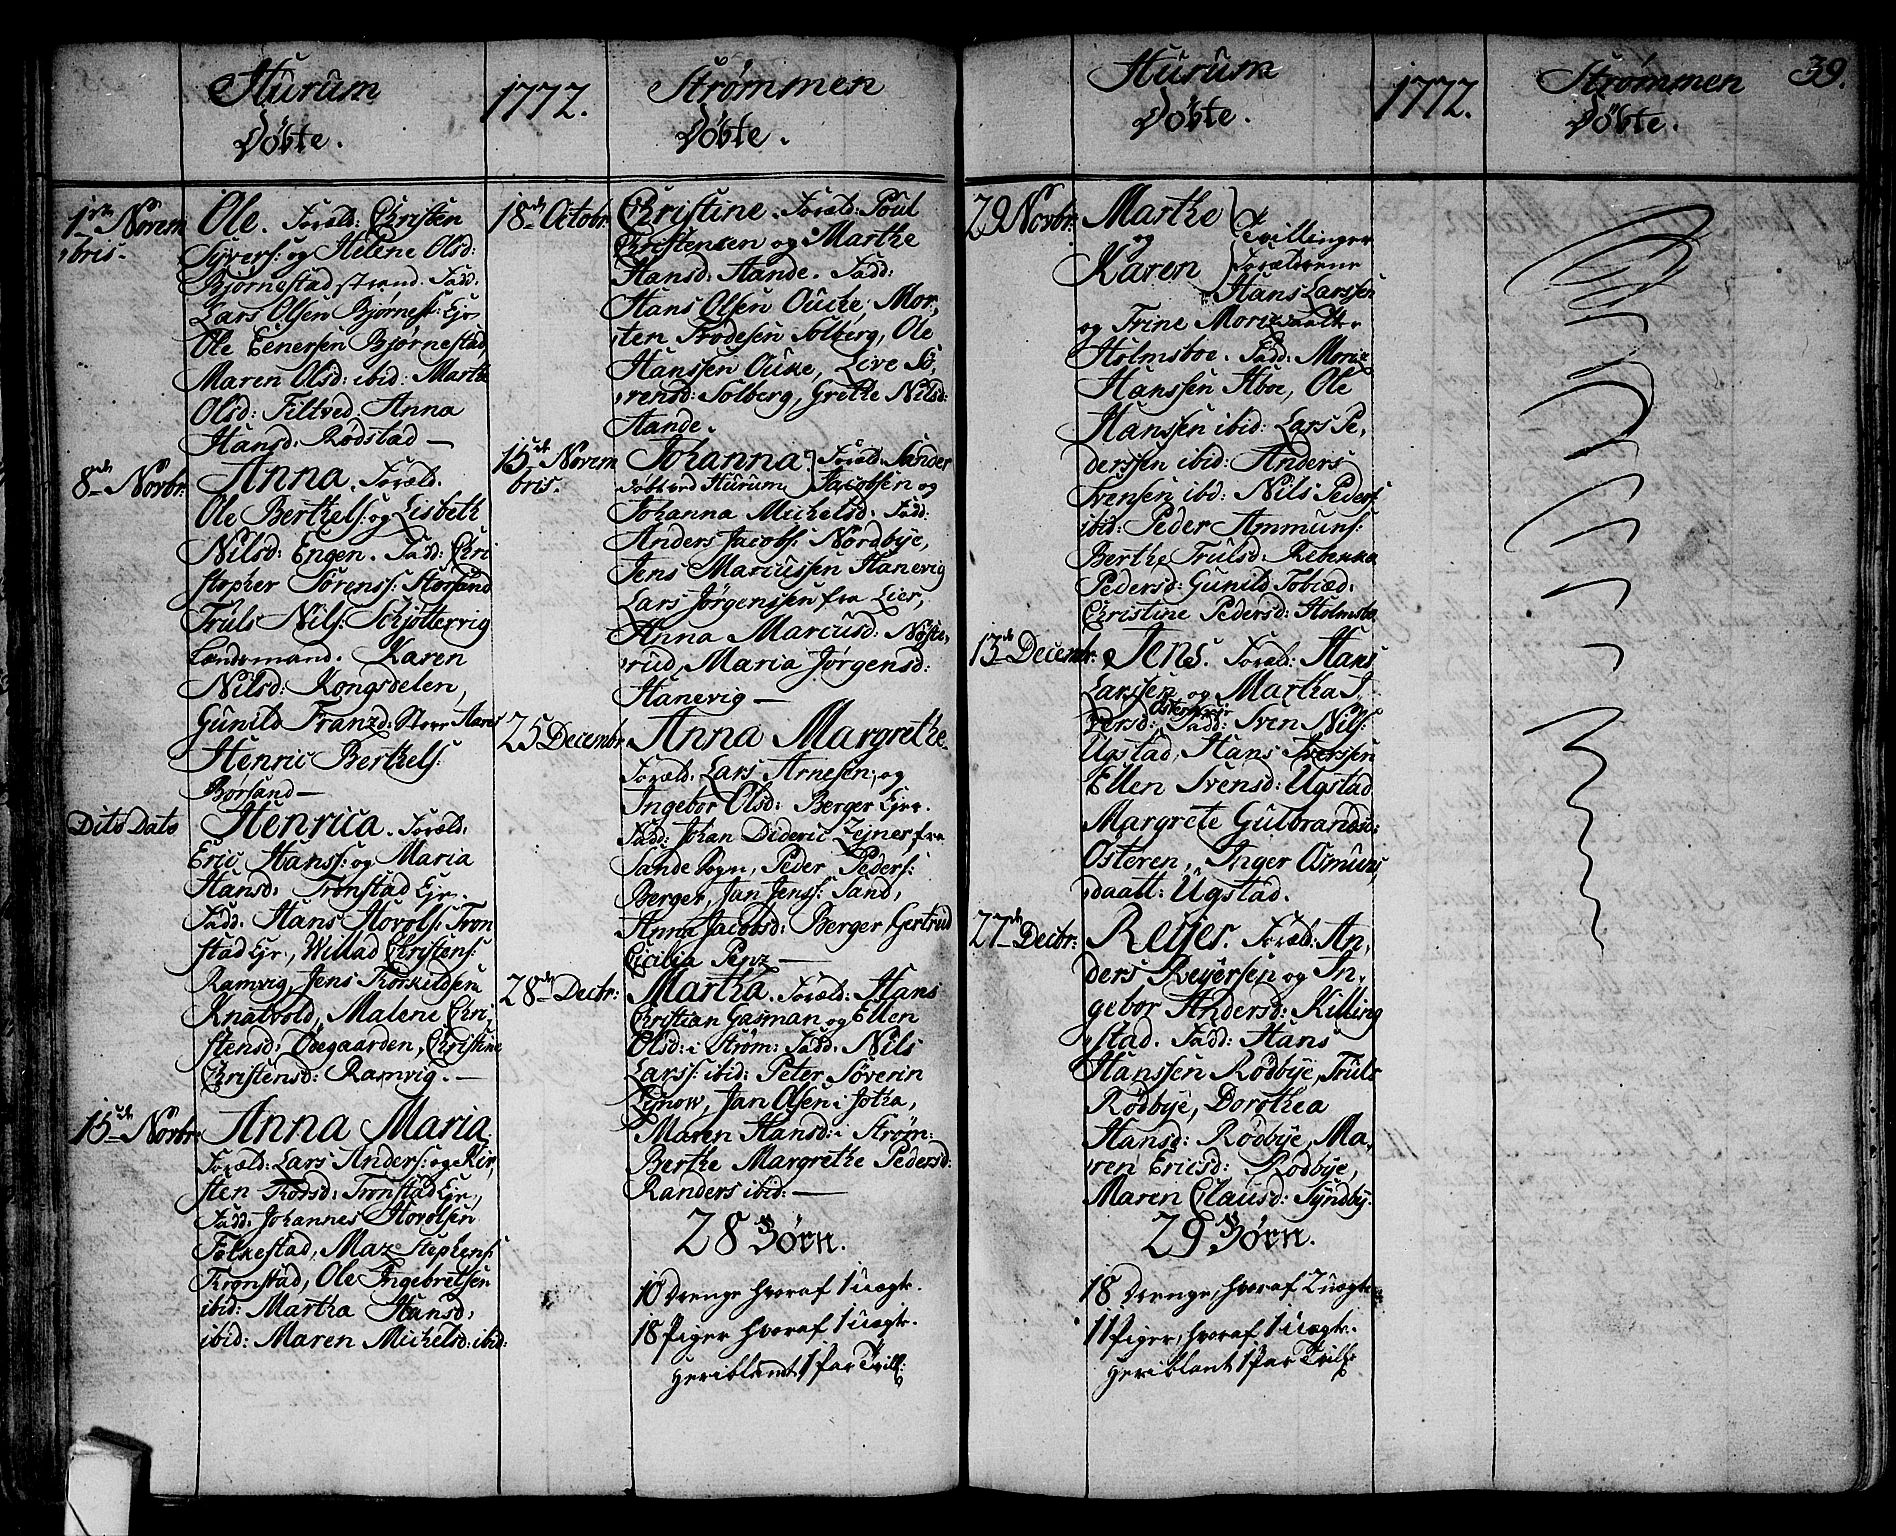 Hurum
Døbte.
1772.
Strømmen
Døbte.
1ste Novem
bris.
Ole. Foræld: Christen
Syvers: og Helene Olsd:
Bjørnestadstrand. Fadd:
Lars Olsen Bjørnest: Ejr
Ole Eenersen Bjørnestad,
Maren Olsd: ibid: Marthe
Olsd: Filtved, Anna
Hansd: Rødstad —
8de Novbr:
Anna. Foræld:
Ole Berthels: og Lisbeth
Nilsd: Engen. Fadd: Chri
stopher Sørens: Storsand
Truls Nils: Schjøttervig
Lændsmand. Karen
Nilsd: Kongsdelen,
Gunild Franzd: Store Aaros
Henric Berthels:
Børsand —
Dito Dato
Henrica. Foræld:
Eric Hanss: og Maria
Hansd: Tronstad Ejr.
Fadd: Hans Hovols: Tron
stad Ejr., Willad Christens:
Ramvig, Jens Torkildsen
Knatvold, Malene Chri,
stensd: Ødegaarden, Christine
Christensd: Ramvig. —
15de Novbr:
Anna Maria.
Foræld: Lars Anders: og Kir,
sten Tordsd: Tronstad Ejr,
Fadd: Johannes Hovolsen
Folkestad, Maz Stephens:
Tronstad, Ole Ingebretsen
ibid: Martha Hansd:
ibid: Maren Michelsd: ibid:
18de Octobr:
Christine. Foræld: Poul
Christensen og Marthe
Hansd: Aande. Fadd:
Hans Olsen Oucke, Mor,
ten Frodesen Solberg, Ole
Hanssen Ouke, Live Sø,
rensd: Solberg, Grethe Nilsd:
Aande.
15de Novem
bris.
Johanna. Foræld: Sander
døbt ved Hurum Jacobsen og
Johanna Michelsd. Fadd:
Anders Jacobs: Nordbye,
Jens Marcussen Hanevig
Lars Jørgenssen fra Lier,
Anna Marcusd: Nøste,
rud, Maria Jørgensd:
Hanevig —
25 Decembr:
Anna Margrethe.
Foræld: Lars Arnesen, og
Ingebor Olsd: Berger Ejer.
Fadd: Johan Dideric Zejner fra
Sande Sogn, Peder Peders:
Berger, Jan Jenss: Sand,
Anna Jacobsd: Berger Gertrud
Cicilia Penz —
28de Decbr:
Martha. Foræld: Hans
Christian Gasman og Ellen
Olsd: i Strøm: Fadd: Nils
Larss: ibid: Peter Søverin
Lynow, Jan Olsen i Jotha,
Maren Hansd: i Strøm:
Berthe Margrethe Pedersd:
Randers ibid: —
28 Børn.
10 Drenge hvoraf 1 uægte.
18 Piger hvoraf 1 uægte.
heriblandt 1 Par Tvill:
Hurum
Døbte.
1772.
Strømmen
Døbte.
39.
29 Novbr:
Marthe
og
Karen
Tvillinger
Forældrene
Hans Larssen
og Trine Morizdaatter
Holmsboe. Fadd: Moriz
Hanssen Hboe, Ole
Hanssen ibid: Lars Pe,
derssen ibid: Anders
Svensen ibd: Nils Peders:
ibid: Peder Ammuns:
Berthe Trulsd: Rebekka
Pedersd: Gunild Tobiæd:
Christine Pedersd: Holmsbo
13de Decembr:
Jens. Foræld: Hans
Larssen og Martha I,
versd: Fadd: Sven Nils:
Ugstad, Hans Iverssen
Ellen Svensd: Ugstad
Margrete Gulbrandsd:
Østeren, Inger Osmuns
daatt: Ugstad.
27de Decbr:
Reyer. Foræld: An,
ders Reyersen og In,
gebor Andersd: Killing
stad. Fadd: Hans
Hanssen Rødbye, Truls
Rødbye, Dorothea
Hansd: Rødbye, Ma,
ren Ericsd: Rødbye,
Maren Clausd: Syndby.
29 Børn.
18 Drenge, hvoraf 2 uægte
11 Piger, hvoraf 1 uægte.
heriblant 1 Par Tvill: